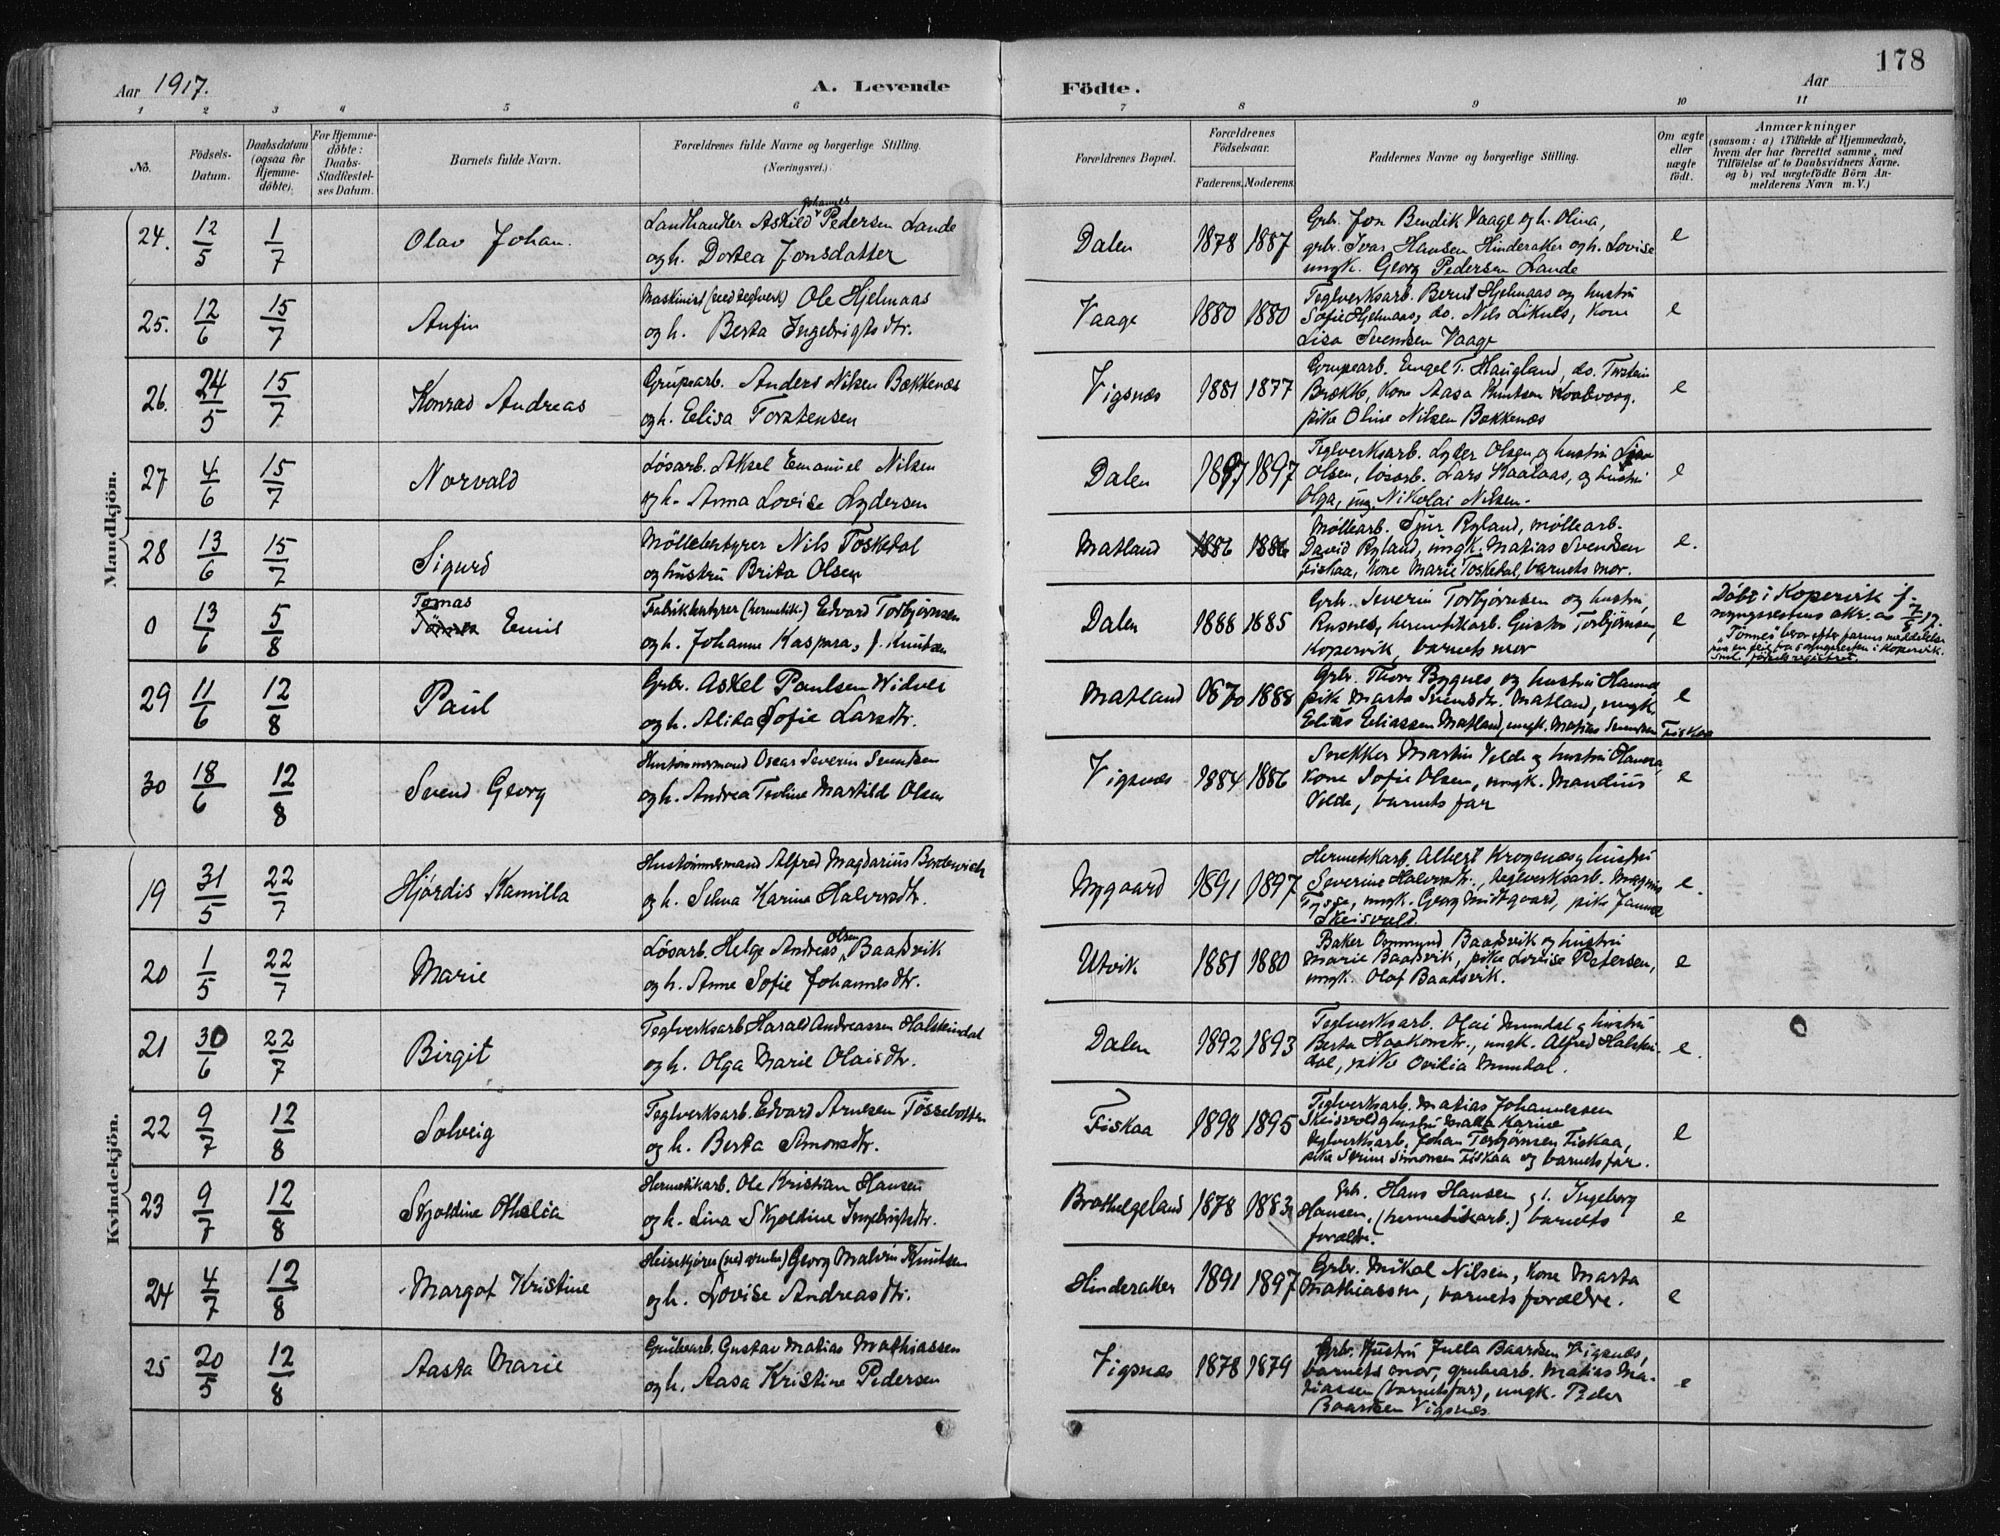 178
Aar 1917.
A. Levende Födte.
Aar
1 2 3 4 5 6 7 8 9 10 11
No.
Födsels-Datum.
Daabsdatum (ogsaa for Hjemmedöbte).
For Hjemmedöbte: Daabs-Stadfæstelses Datum.
Barnets fulde Navn.
Forældrenes fulde Navne og borgerlige Stilling. (Næringsvei.)
Forældrenes Bopæl.
Forældrenes Födselsaar.
Faderens. Moderens.
Faddernes Navne og borgerlige Stilling.
Om ægte eller uægte födt.
Anmærkninger
(saasom: a) i Tilfælde af Hjemmedaab, hvem der har forrettet samme, med Tilföielse af to Daabsvidners Navne. og b) ved uægtefödte Börn Anmelderens Navn m. V.)
Mandkjön.
24. 12/5 1/7 Olav Johan. Landhandler Askild Johannes Pedersen Lande
og h. Dortea Jonsdatter
Dalen 1878 1887 Grb. Jon Bendik Vaage og h. Olina,
grbr. Ivar Hansen Hinderaker og h. Lovise
ungk. Georg Pedersen Lande
e
25. 12/6 15/7 Anfin Maskinist (ved teglverk) Ole Hjelmaas
og h. Berta Ingebrigtsdtr.
Vaage 1880 1880 Teglverksarb. Bernt Hjelmaas og hustru
Sofie Hjelmaas, do. Nils Liknes, Kone
Lisa Svendsen Vaage
e
26. 24/5 15/7 Konrad Andreas Grupearb. Anders Nilsen Bækkenes
og h. Elisa Torstensen
Vigsnæs 1881 1877 Grupearb. Engel T. Haugland, do. Torstein
Brække, Kone Aasa Knutsen
pike Oline Nilsen Bækkenæs
e
27 4/6 15/7 Norvald Løsarb. Aksel Emanuel Nilsen
og h. Anna Lovise Lydersen
Dalen 1897 1897 Teglverksarb. Lyder Olsen og hustru
Olsen, løsarb. Lars Kaalaas, og hustru
Olga, ung. Nikolai Nilsen.
e
28 13/6 15/7 Sigurd Møllebestyrer Nils Toskedal
og hustru Brita Olsen
Matland 1886 1886 Møllearb. Sjur Ryland, møllearb.
David Ryland, ungk. Matias Svendsen
Fiskaa, Kone Marie Toskedal, barnets mor.
e.
0 13/6 5/8 Tomas
Tønnes Emil Fabrikbestyrer (hermetik.) Edvard Torbjørnsen
og h. Johanne Kaspara, f. Knutsen
Dalen 1888 1885 Grb. Severin Torbjørnsen og hustru,
Rusnes, hermetikarb. Gustav Torbjørnsen,
Kopervik, barnets mor
e
Döbt i Kopervik f.
sogneprestens akr. av 7/8 17.
„Tønnes" beror efter farens meddelelse
paa en feil fra sognepresten i Kopervik.
29 11/6 12/8 Paul Grbr. Askel Paulsen Widvei
og h. Alida Sofie Larsdtr.
Matland 1870 1888 Grbr. Thore Bygnes og hustru Hanna
pike Marta Svendsdtr. Matland, ungk.
Elias Eliassen Matland, ungk. Matias Svendsen Fiskaa
e
30 18/6 12/8 Svend Georg Hustømmermand Oscar Severin Svendsen
og h. Andrea Teoline Martilde Olsen
Vigsnæs 1884 1886 Snekker Martin Velde og hustru
Kone Sofie Olsen, ungk. Mandius
Velde, barnets far
e
Kvindekjön.
19 31/5 22/7 Hjørdis Kamilla Hustømmermand Alfred Magdarius
og h. Selma Karine Halvorsdtr.
Nygaard 1891 1897 Hermetikarb. Albert Krogenæs og hustru
Severine Halvorsdtr., teglverksarb. Magnus
Tysse, ungk. Georg Midtgaard, pike Janna
Skeisvold.
e.
20 1/5 22/7 Marie Løsarb. Helge Andreas Olsen Baadsvik
og h. Anne Sofie Johannesdtr.
Utvik 1881 1880 Baker Ommund Baadsvik og hustru
Marie Baadsvik, pike Lovise Petersen,
ungk. Olaf Baadsvik.
e
21 30/6 22/7 Birgit Teglverksarb. Harald Andreassen Halsteindal
og h. Olga Marie Olaisdtr.
Dalen 1892 1893 Teglverksarb. Olai Mundal og hustru
Berta Haakonsdtr., ungk. Alfred Halstein-
dal, pike Ovidia Mundal.
e.
22 9/7 12/8 Solveig Teglverksarb. Edvard Arnesen Tøssebotten
og h. Berta Simonsdtr.
Fiskaa 1898 1895 Teglverksarb. Matias Johannessen
Skeisvold og hustru Marta Karine
teglverksarb. Johan Torbjørnsen Fiskaa,
pike Serine Simonsen Fiskaa og barnets far.
e
23 9/7 12/8 Skjoldine Othelia Hermetikarb. Ole Kristian Hansen
og h. Lina Skjoldine Ingebrigtsdtr.
Brathelgeland 1878 1883 Grb. Hans Hansen og h. Ingeborg
Hansen, (hermetikarb.) barnets
forældre.
e
24 4/7 12/8 Margot Kristine Heisekjører (ved gruben) Georg Malvin Knutsen
og h. Lovise Andreasdtr.
Hinderaker 1891 1897 Grbr. Mikal Nilsen, Kone Marta
Mathiassen, barnets forældre.
e
25 20/5 12/8 Aasta Marie Grubearb. Gustav Matias Mathiassen
og h. Aasa Kristine Pedersen
Vigsnæs 1878 1879 Grb. Hustru Juella Baardsen Vigsnæs,
barnets mor, grubearb. Matias Ma-
tiassen (barnets far), ungk. Peder
Baardsen Vigsnæs.
e